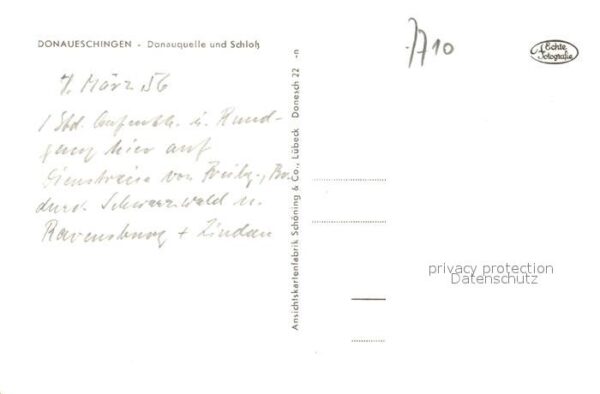 DONAUESCHINGEN - Donauquelle und Schloß
7. März 56
1 Std. Aufenth. u. Rund-
gang hier auf
Dienstreise von Freibg.,
durch Schwarzwald u.
Ravensburg + Lindau
Ansichtskartenfabrik Schöning & Co., Lübeck Donesch 22 -n
7710
Echte Fotografie
privacy protection
Datenschutz